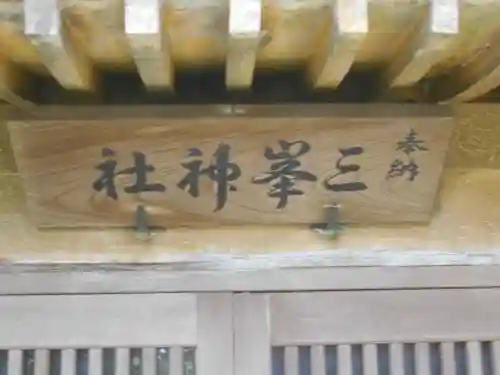 奉納
三峯神社